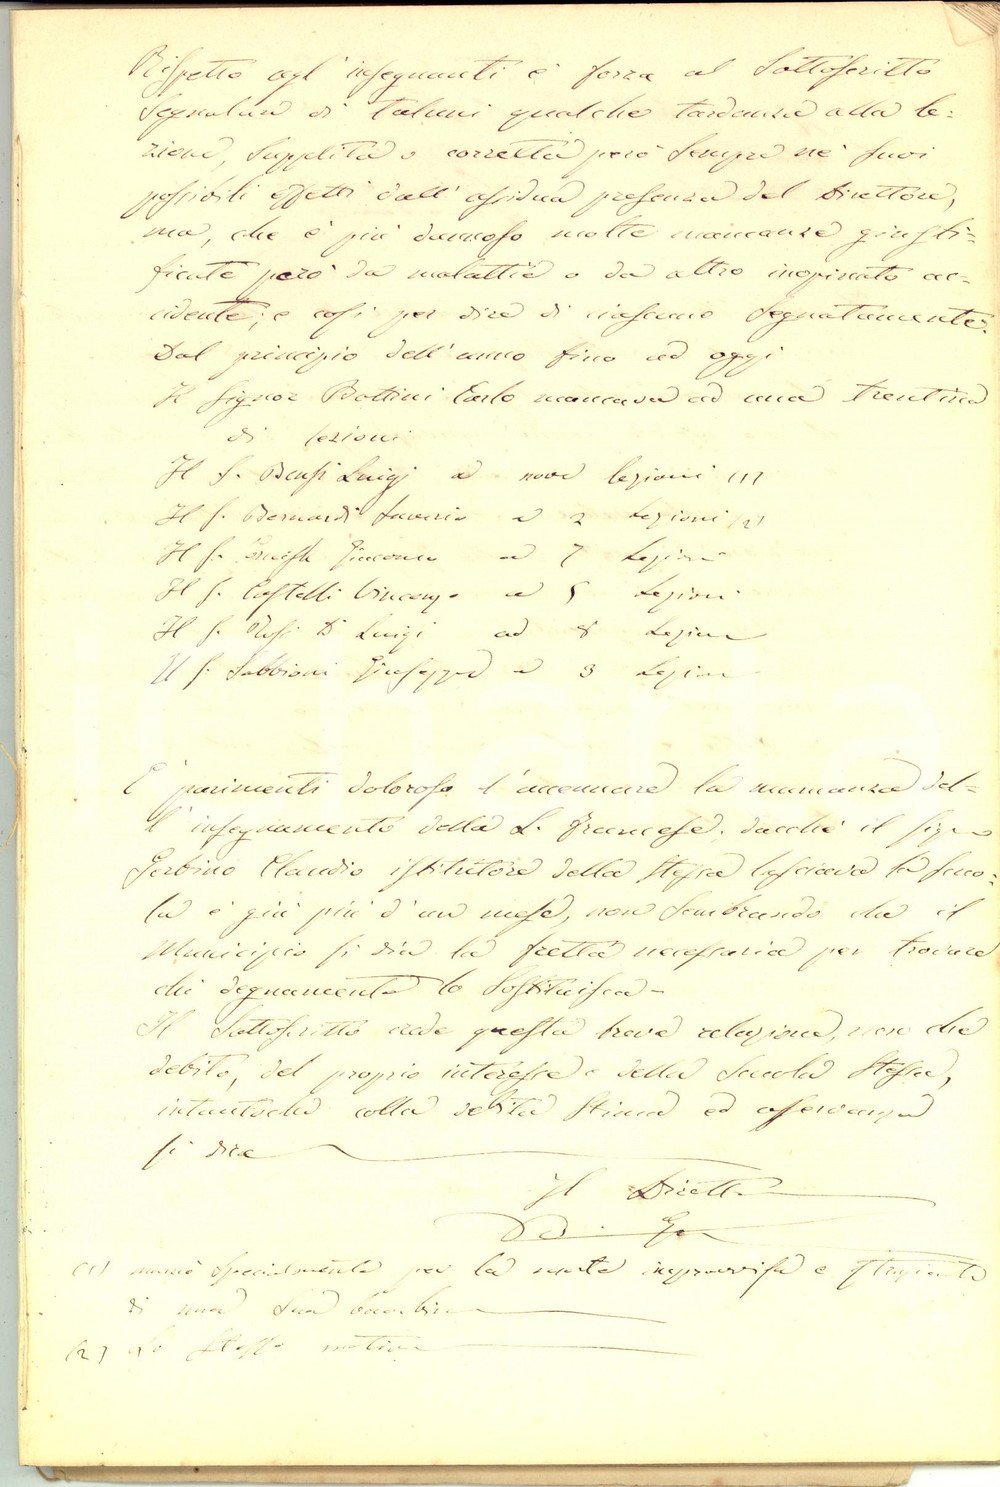 Rispetto agl' insegnanti è forza al Sottoscritto
Segnalare di taluni qualche tardanza alla le=
zione, supplita o corretta però sempre ne' suoi
possibili effetti dall' assidua presenza del Direttore,
ma, che è più dannoso molte mancanze giusti=
ficate però da malattie o da altro inopinato ac=
cidente; e così per dire di ciascuno segnatamente.
Dal principio dell' anno fino ad oggi
Il Signor Bottini Carlo mancava ad una trentina
di lezioni
Il S. Luigi a nove lezioni (1)
Il S. Bernardi Saverio a 2 Lezioni (2)
Il S. Giacomo a 7 Lezioni
Il S. Castelli Vincenzo a 5 Lezioni
Il S. Rossi D. Luigi ad 8 Lezioni
Il S. Sabbioni Giuseppe a 3 Lezioni
E' parimenti doloroso l' accennare la mancanza del=
l' insegnamento della L. Francese, dacchè il Sign.
Gerbino Claudio istitutore della stessa lasciava la scuo=
la è già più d' un mese, non sembrando che il
Municipio si dia la fretta necessaria per trovare
chi degnamente lo Sostituisca –
Il Sottoscritto crede questa breve relazione, non che
debito, del proprio interesse e della Scuola stessa,
intantochè colla debita stima ed osservanza
si dice
Il Direttore
(1) specialmente per la morte improvvisa e
di una sua bambina
(2) Lo stesso motivo